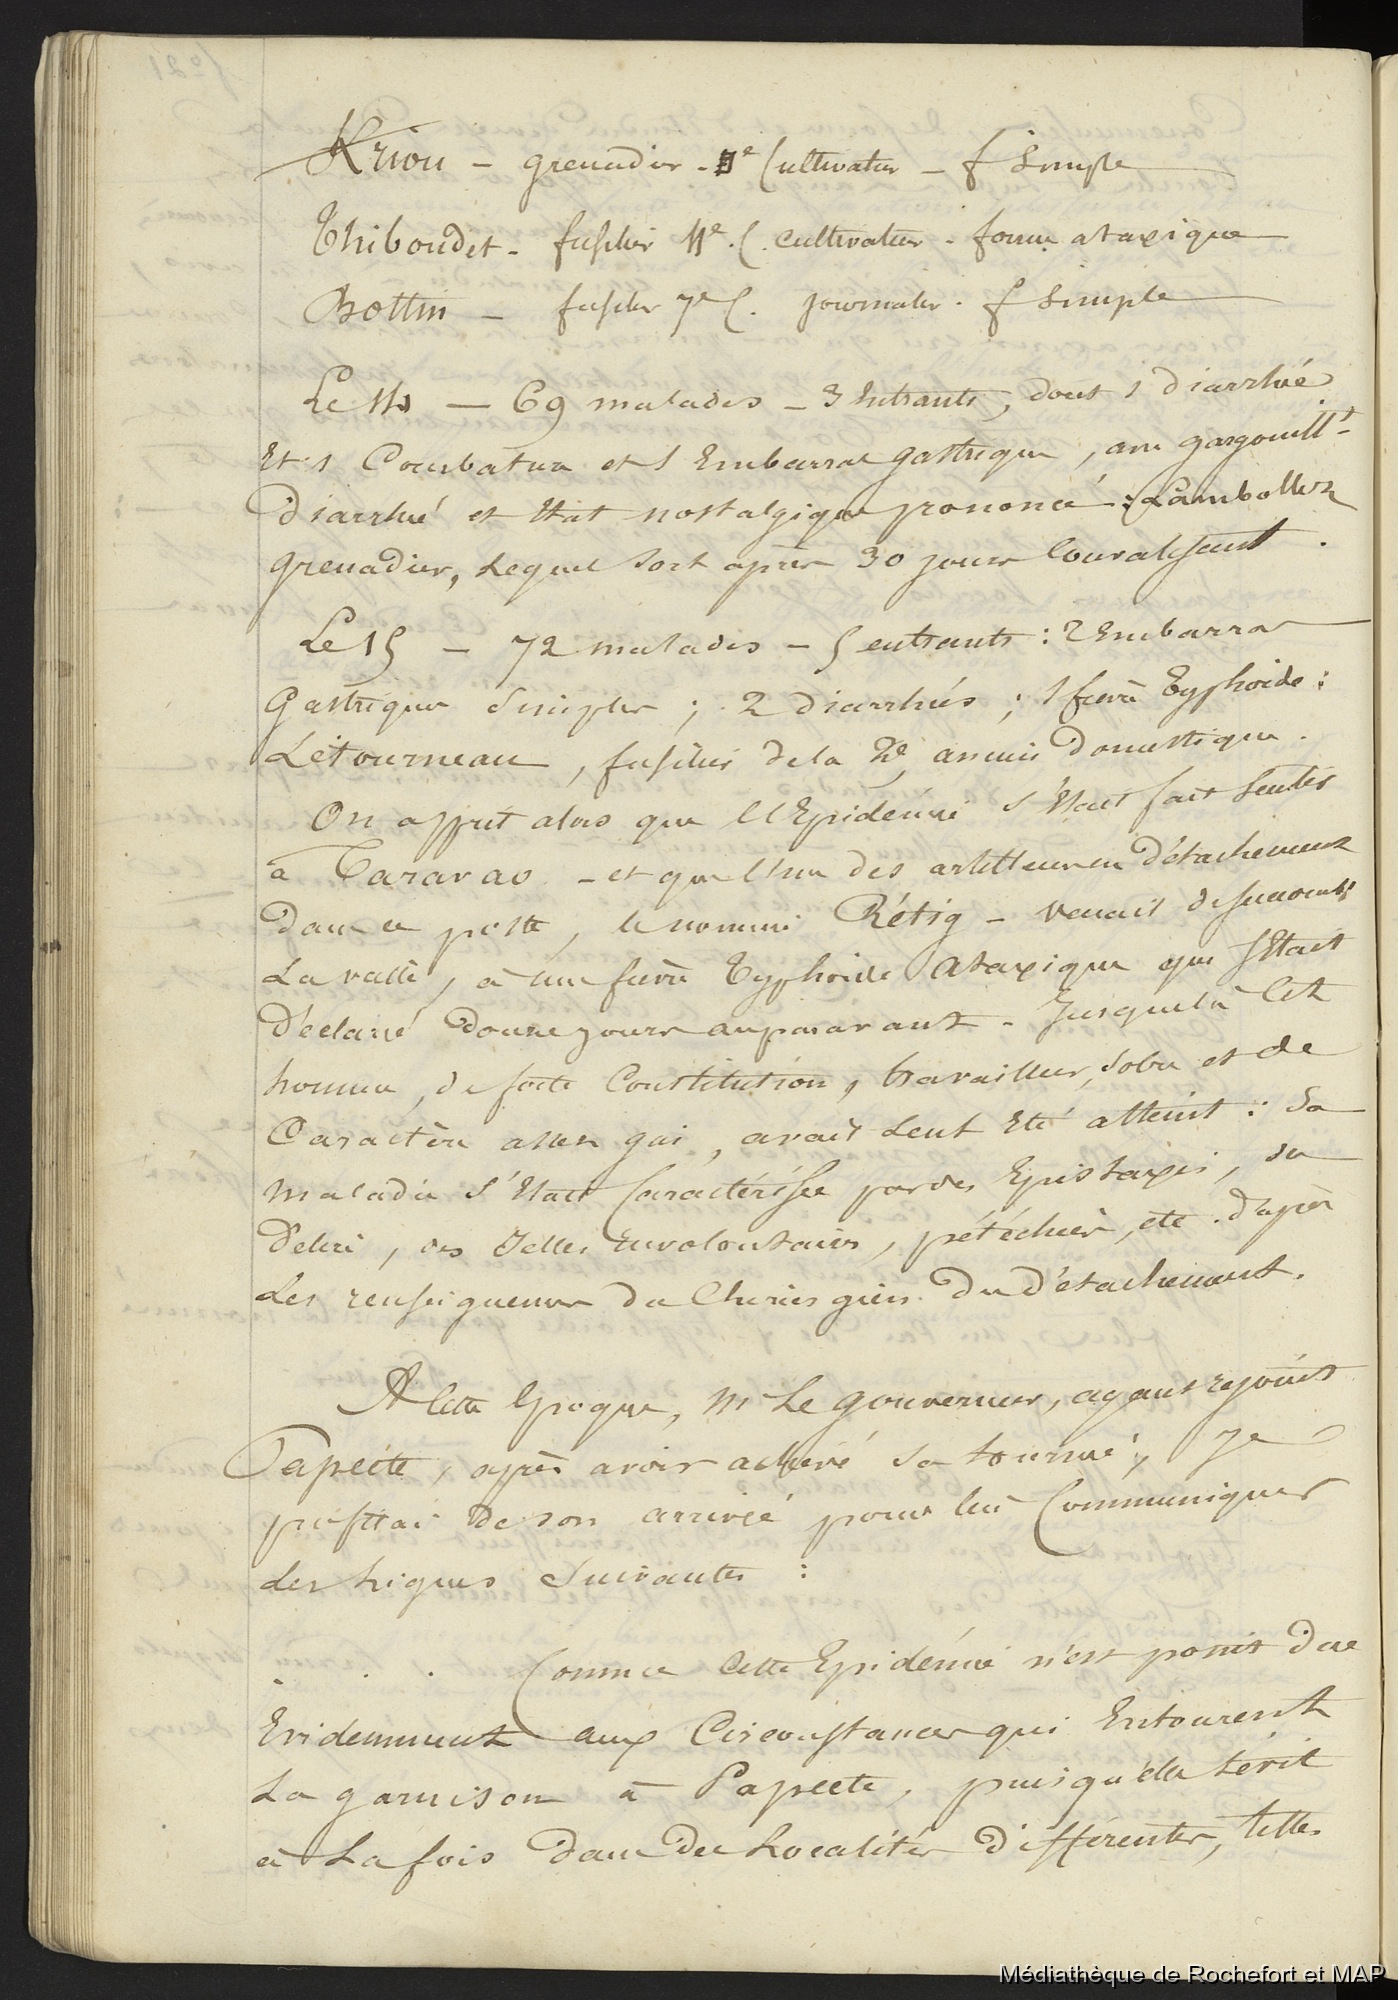 Kriou – grenadier – 3e Cultivateur – f Simple
Thiboudet – fusilier 11e C. cultivateur – forme ataxique
Bottin – fusilier 7e C. journalier – f Simple
Le 14 – 69 malades – 3 Entrants, dont 1 diarrhée
Et 1 Courbature et 1 Embarras gastrique, avec gargouillt
Diarrhée et Etat nostalgique prononcé : Lambollez
grenadier, Lequel sort après 30 jours Convalescent.
Le 15 – 72 malades – 5 entrants : 2 Embarras
Gastriques Simples ; 2 diarrhées ; 1 fièvre Typhoïde :
Létourneau, fusilier de la 2e, ancien domestique.
On apprit alors que l'Epidémie s'Etait fait Sentir
à Taravao – et que l'un des artilleurs en Détachement
dans ce poste, le nommé Rétig – venait de succomber
La veille, à une fièvre Typhoïde Ataxique qui s'Etait
Déclaré douze jours auparavant – Jusque là Cet
homme, de forte Constitution, travailleur, sobre et de
Caractère assez gai, avait seul Eté atteint : Sa
maladie s'Etait Caractérisée par des Epistaxis, du
Délire, des Selles involontaires, pétéchies, etc. d'après
Les renseignemens du Chirurgien du Détachement.
A Cette Epoque, Mr Le gouverneur, ayant rejoint
Papeete, après avoir achevé Sa tournée, Je
profitai de son arrivée pour lui Communiquer
Les Lignes Suivantes :
. . . Comme Cette Epidémie n'est point due
Evidemment aux Circonstances qui Entourent
La garnison à Papeete, puisqu'elle Sévit
à La fois dans des Localités Différentes, telles
Médiathèque de Rochefort et MAP